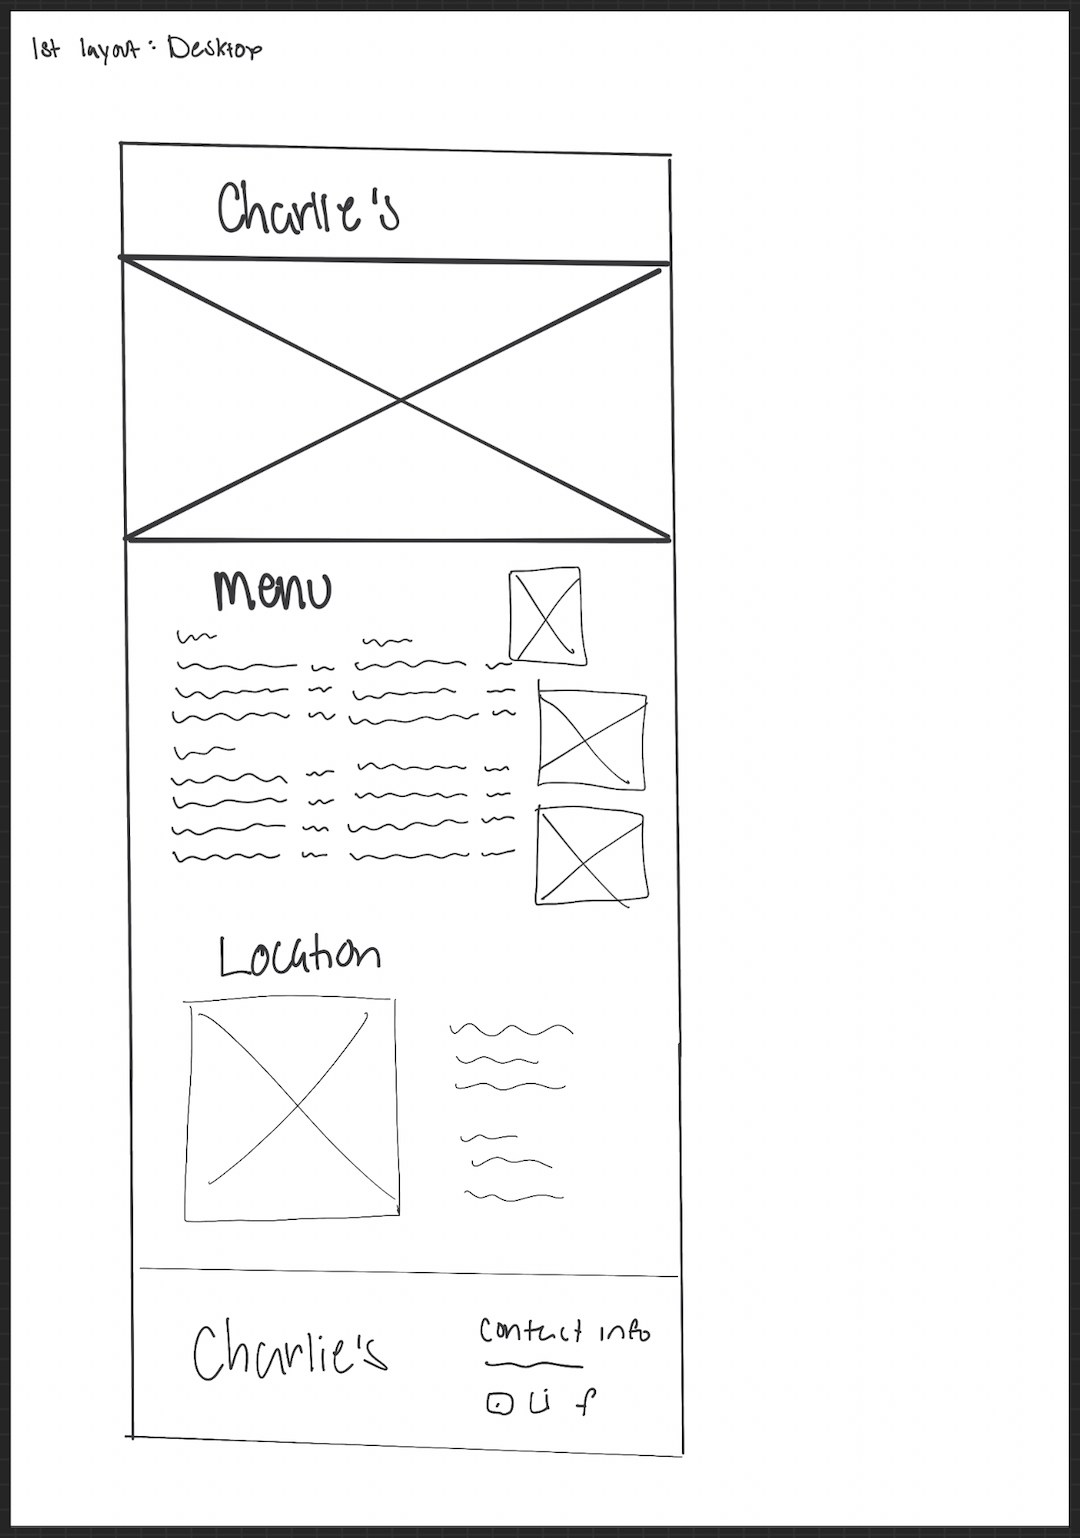 1st layout: Desktop
Charlie's
Menu
Location
Charlie's
Contact info